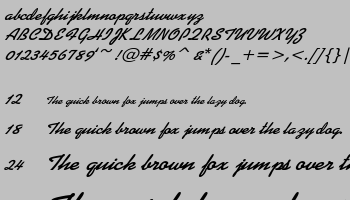 abcdefghijklmnopqrstuvwxyz
ABCDEFGHIJKLMNOPQRSTUVWXYZ
0123456789'~!@#$%^&*()-_+=>,<.[]{}|
12 The quick brown fox jumps over the lazy dog.
18 The quick brown fox jumps over the lazy dog.
24 The quick brown fox jumps over